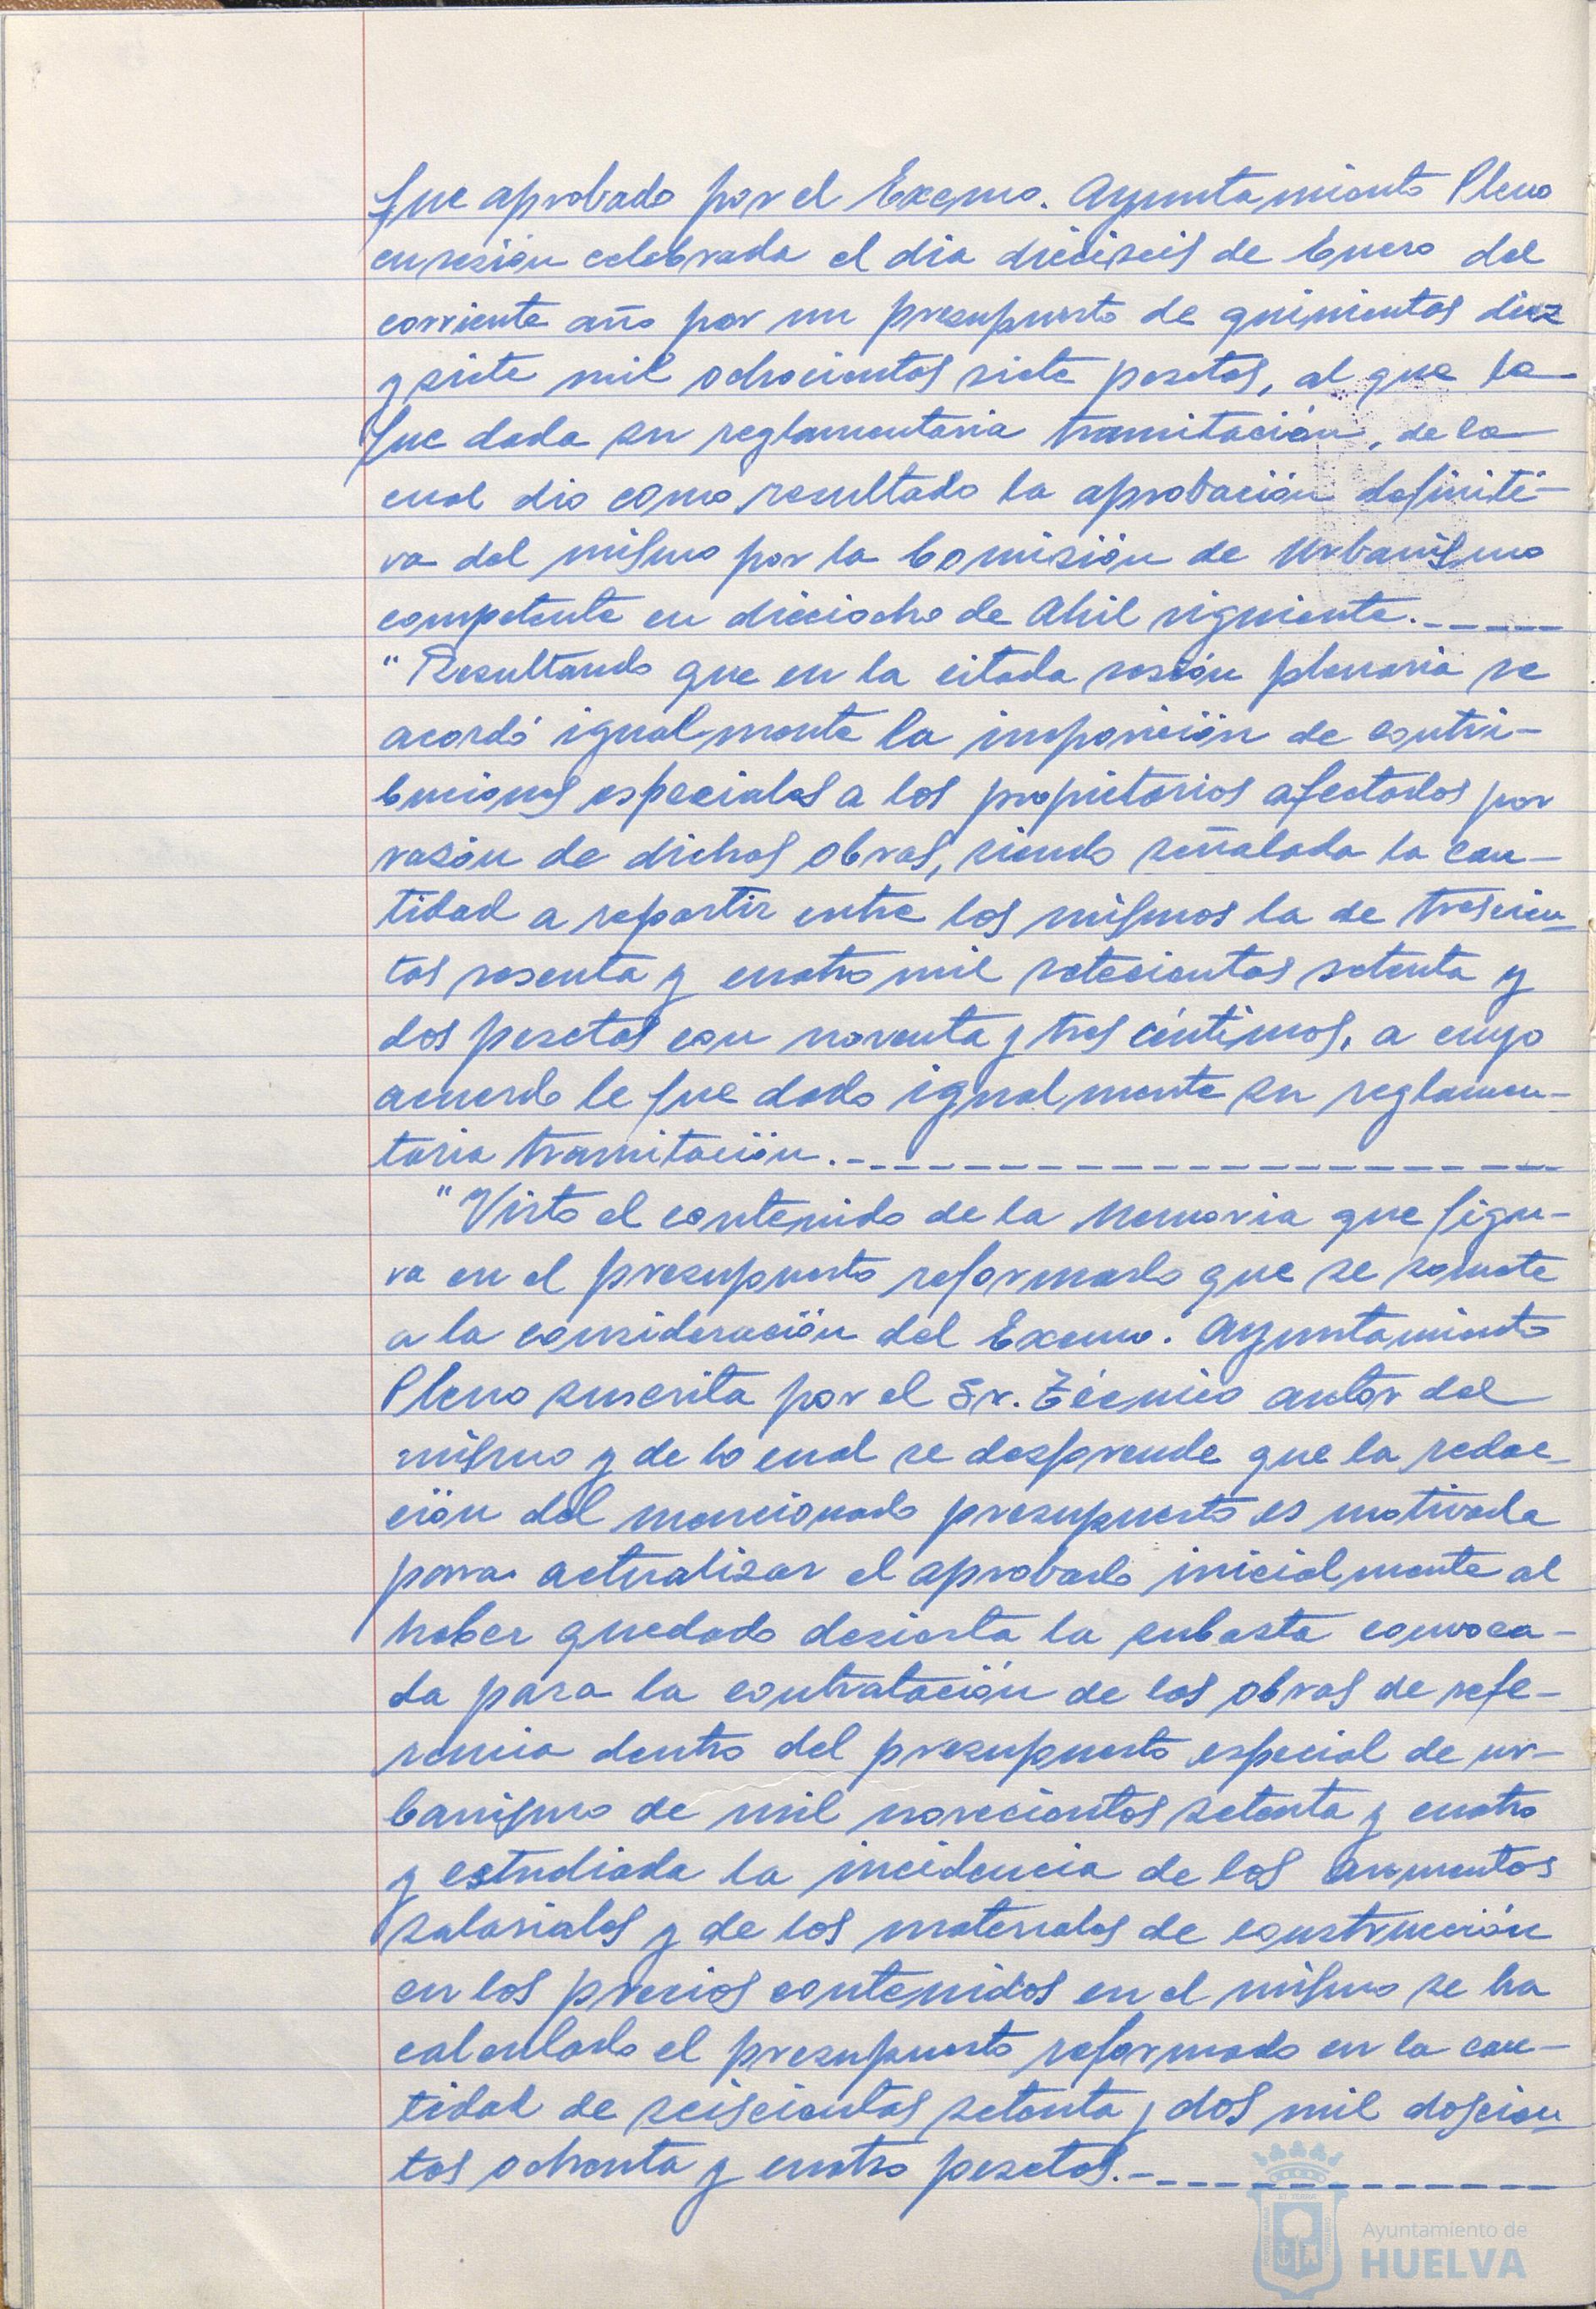 fue aprobado por el Excmo. Ayuntamiento Pleno
en sesión celebrada el dia dieciseis de Enero del
corriente año por un presupuesto de quinientas diez
y siete mil ochocientas siete pesetas, al que le
fue dada su reglamentaria tramitación, de la
cual dio como resultado la aprobación definiti-
va del mismo por la Comisión de Urbanismo
competente en dieciocho de Abril siguiente.------
"Resultando que en la citada sesión plenaria se
acordó igualmente la imposición de contri-
buciones especiales a los propietarios afectados por
razón de dichas obras, siendo señalada la can-
tidad a repartir entre los mismos la de trescien-
tas sesenta y cuatro mil setecientas setenta y
dos pesetas con noventa y tres céntimos, a cuyo
acuerdo le fue dado igualmente su reglamen-
taria tramitación.--------------------
"Visto el contenido de la Memoria que figu-
ra en el presupuesto reformado que se somete
a la consideración del Excmo. Ayuntamiento
Pleno suscrita por el Sr. Técnico autor del
mismo y de lo cual se desprende que la redac-
ción del mencionado presupuesto es motivada
para actualizar el aprobado inicialmente al
haber quedado desierta la subasta convoca-
da para la contratación de las obras de refe-
rencia dentro del presupuesto especial de ur-
banismo de mil novecientos setenta y cuatro
y estudiada la incidencia de los aumentos
salariales y de los materiales de construcción
en los precios contenidos en el mismo se ha
calculado el presupuesto reformado en la can-
tidad de seiscientas setenta y dos mil doscien-
tas ochenta y cuatro pesetas.-------------
Ayuntamiento de
HUELVA